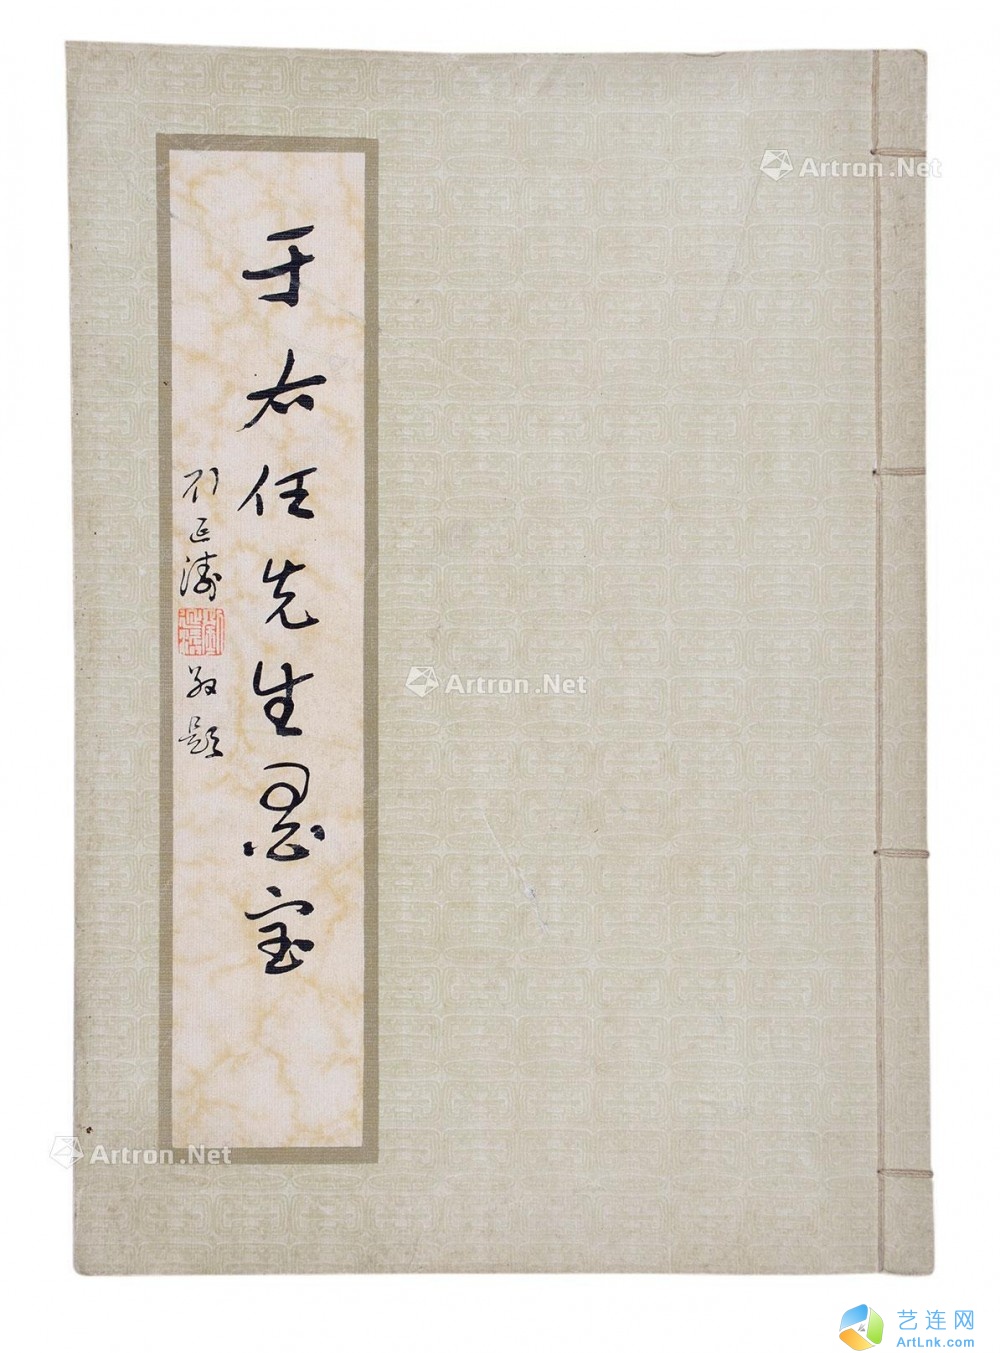 于右任先生墨宝
刘延涛
敬题
Artron.Net
Artron.Net
Artron.Net
艺连网
ArtLnk.com